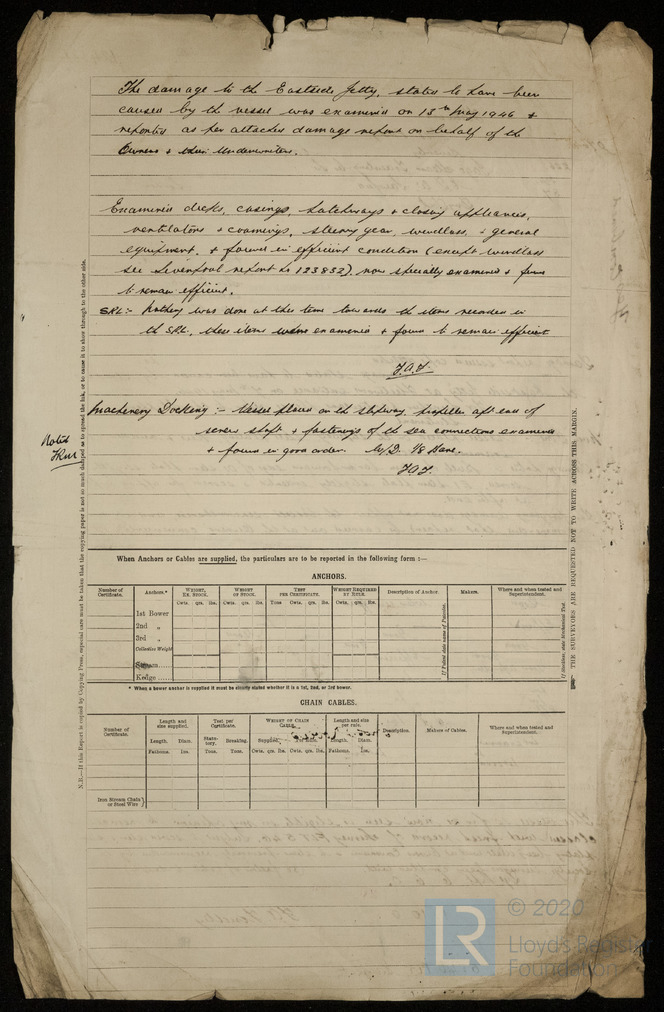 The damage to the Eastside Jetty, stated to have been
caused by the vessel was examined on 15th May 1946 &
reported as per attached damage report on behalf of the
Owners & their Underwriters.
Examined decks, casings, hatchways & closing appliances,
ventilators & coamings, steering gear, windlass, & general
equipment, & found in efficient condition (except windlass
see Liverpool report No 123852). now specially examined & found
to remain efficient.
SRL:- Nothing was done at this time towards the items recorded in
the SRL, these items were examined & found to remain efficient
Machinery Docking :- Vessel placed on the slipway, propeller aft end of
screw shaft & fastenings of the sea connections examined
& found in good order.
Noted
N.B.—If this Report is copied by Copying Press, especial care must be taken that the copying paper is not so much damped as to spread the Ink, or to cause it to show through to the other side.
THE SURVEYORS ARE REQUESTED NOT TO WRITE ACROSS THIS MARGIN.
When Anchors or Cables are supplied, the particulars are to be reported in the following form :—
ANCHORS.
Number of Certificate. Anchors.* Weight, Ex. Stock. Weight of Stock. Test per Certificate. Weight Required by Rule. Description of Anchor. Makers. Where and when tested and Superintendent.
Cwts. qrs. lbs. Cwts. qrs. lbs. Tons Cwts. qrs. lbs. Cwts. qrs. lbs.
1st Bower
2nd „
3rd „
Collective Weight
Stream
Kedge
If Patent state name of Patentee.
If Stockless, state Mechanical Test.
* When a bower anchor is supplied it must be clearly stated whether it is a 1st, 2nd, or 3rd bower.
CHAIN CABLES.
Number of Certificate. Length and size supplied. Test per Certificate. Weight of Chain Cable. Length and size per rule. Description. Makers of Cables. Where and when tested and Superintendent.
Length. Diam. Statutory. Breaking. Supplied. Length. Diam.
Fathoms. Ins. Tons. Tons. Cwts. qrs. lbs. Cwts. qrs. lbs. Fathoms. Ins.
Iron Stream Chain or Steel Wire
LR
© 2020
Lloyd's Register
Foundation